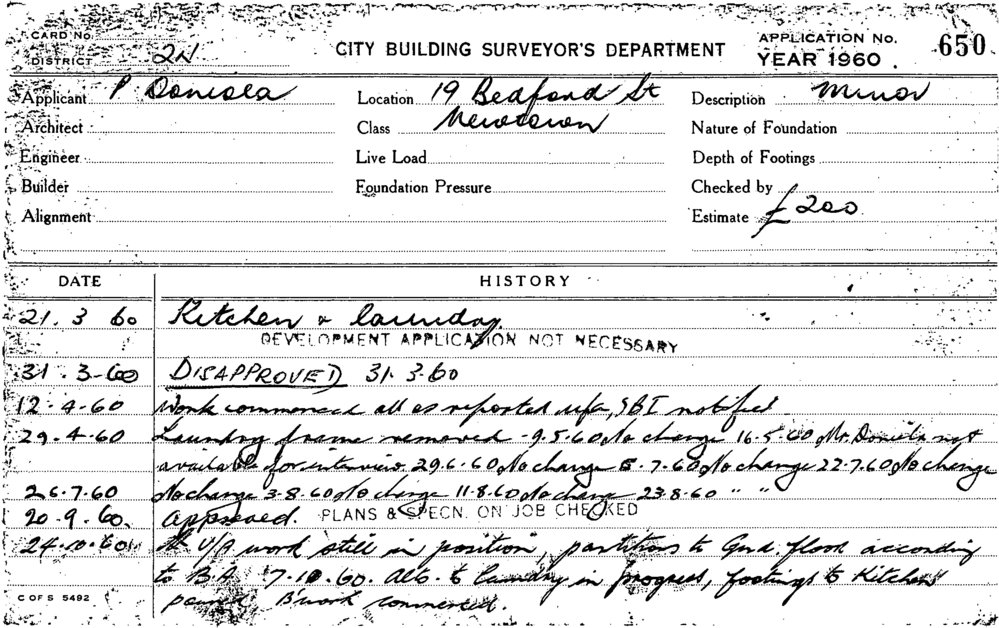 CARD No.
DISTRICT 21
CITY BUILDING SURVEYOR'S DEPARTMENT
APPLICATION No. 650
YEAR 1960
Applicant P Location 19 Bedford St Description Minor
Architect Class Newtown Nature of Foundation
Engineer Live Load Depth of Footings
Builder Foundation Pressure Checked by
Alignment Estimate £200
DATE HISTORY
21. 3 60 Kitchen & laundry
DEVELOPMENT APPLICATION NOT NECESSARY
31. 3-60 DISAPPROVED 31. 3-60
12-4-60 Work commenced all as reported SBI notified
29-4-60 Laundry frame removed - 9.5.60 No change 16.5.60 Mr. not
available for interview. 29.6.60 No change 7.60 No change 22.7.60 No change
26.7.60 No change 3-8.60 No change 11.8.60 No change 23.8.60 " "
20.9.60. Approved. PLANS & SPECN. ON JOB CHECKED
24-10-60 U/A work still in position, partitions to Gnd. floor according
to B.A. 7-10.60. to laundry in progress, footings to Kitchen
B'work commenced.
C OF S 5492